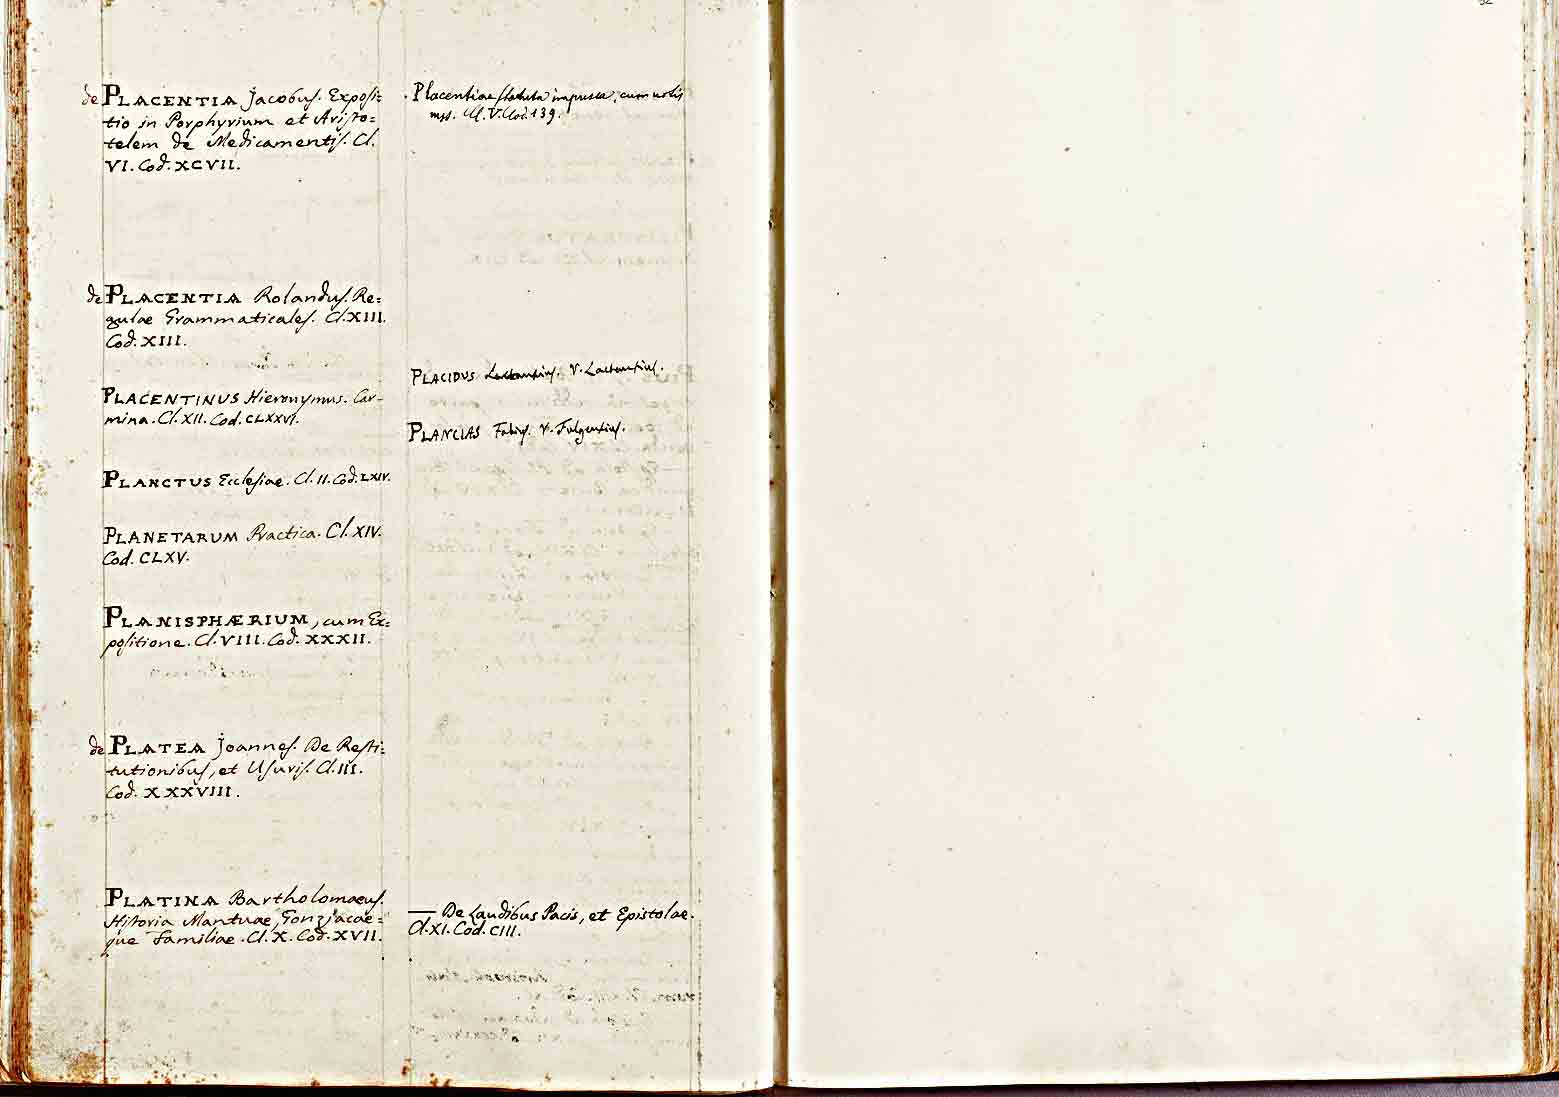 de PLACENTIA Jacobus. Exposi=
tio in Porphyrium et Aristo=
telem de Medicamentis. Cl.
VI. Cod. XCVII.
de PLACENTIA Rolandus. Re=
gulae Grammaticales. Cl. XIII.
Cod. XIII.
PLACENTINUS Hieronymus. Car-
mina. Cl. XII. Cod. CLXXVI.
PLANCTUS Ecclesiae. Cl. II. Cod. LXIV.
PLANETARUM Practica. Cl. XIV.
Cod. CLXV.
PLANISPHÆRIUM, cum Ex=
positione. Cl. VIII. Cod. XXXII.
de PLATEA Joannes. De Resti=
tutionibus, et Usuris. Cl. III.
Cod. XXXVIII.
PLATINA Bartholomaeus.
Historia Mantuae, Gonzjacae=
que Familiae. Cl. X. Cod. XVII.
Placentiae statuta impressa, cum notis
mss. Cl. V. Cod. 139.
PLACIDUS Lactantius. V. Lactantius.
PLANCIAS Fabius. V. Fulgentius.
— De Laudibus Pacis, et Epistolae.
Cl. XI. Cod. CIII.